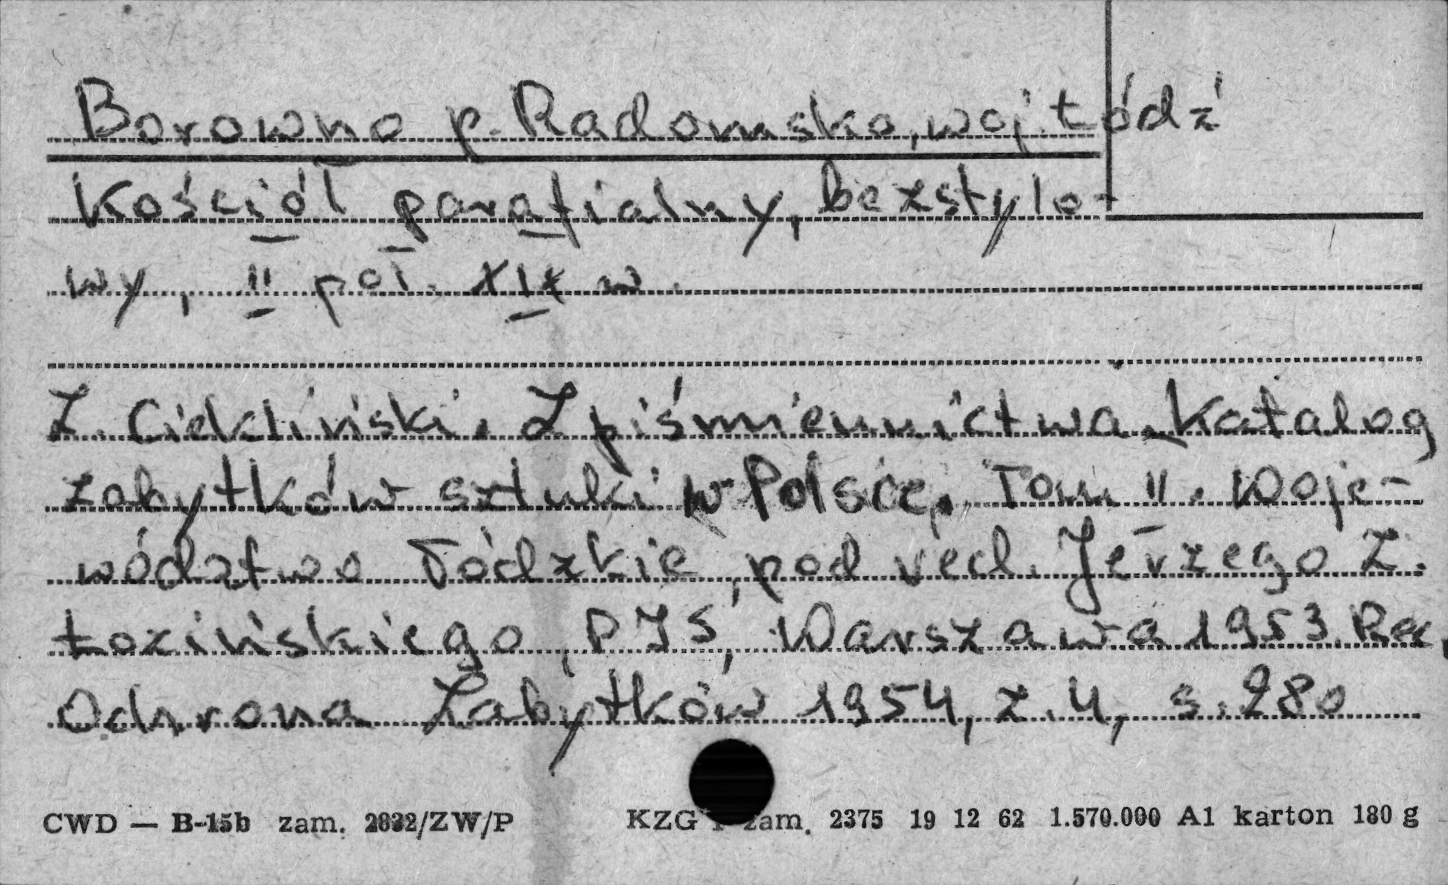 Borowno p. Radomsko, woj. Łódź
Kościół parafialny, bezstylo-
wy, II poł. XIX w.
Z. Ciekliński. Z piśmiennictwa. Katalog
zabytków sztuki w Polsce. Tom II. Woje-
wództwo łódzkie, pod red. Jerzego Z.
Łozińskiego, PIS, Warszawa 1953. Rec.
Ochrona Zabytków 1954, z. 4, s. 280
CWD — B-15b zam. 2832/ZW/P KZG zam. 2375 19 12 62 1.570.000 A1 karton 180 g